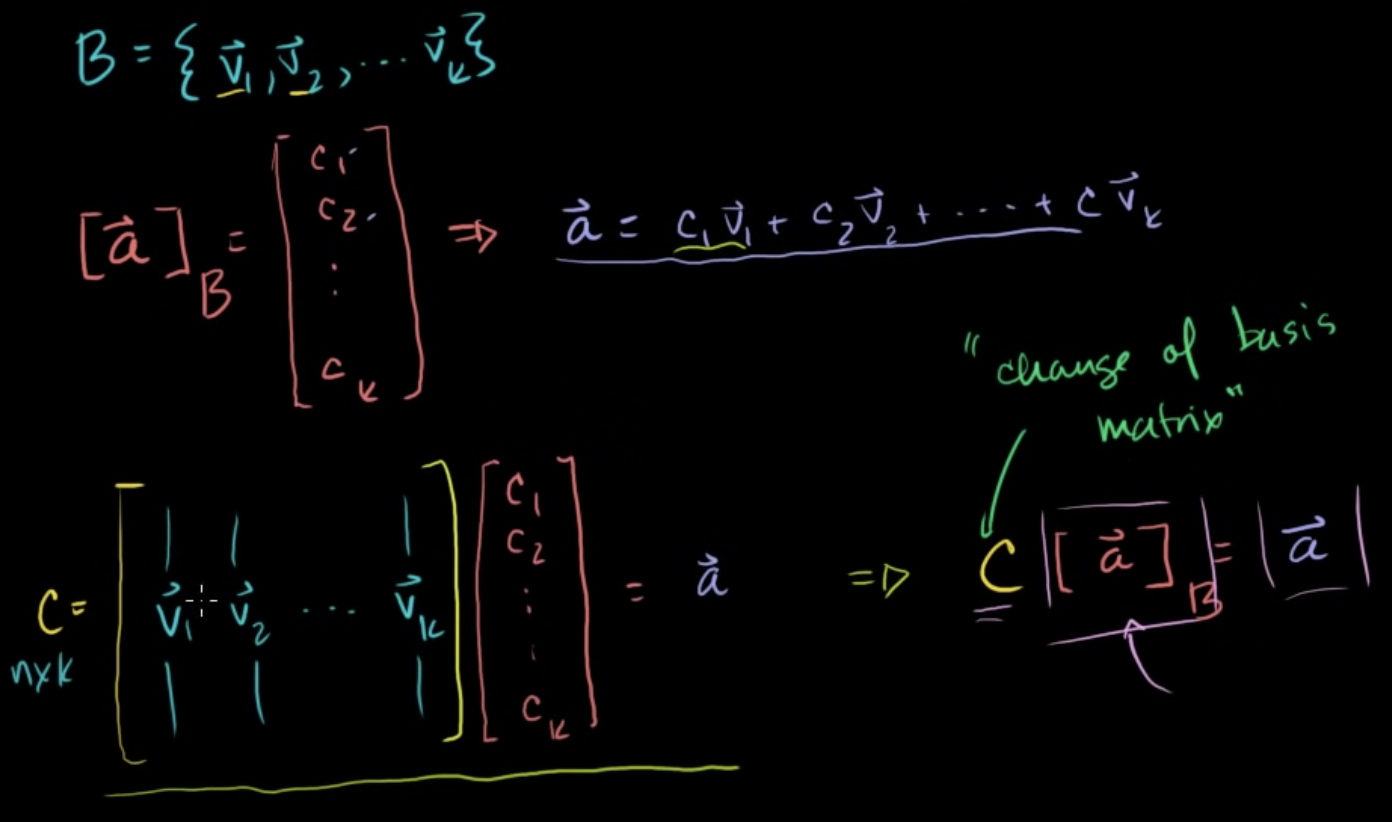 B = { v⃗₁, v⃗₂, ... v⃗ₖ}
[a⃗]_B = [c₁ c₂ ⋮ cₖ] ⇒ a⃗ = c₁v⃗₁ + c₂v⃗₂ + .... + c v⃗ₖ
"change of basis
matrix"
C = [v⃗₁ v⃗₂ ... v⃗ₖ] [c₁ c₂ ⋮ cₖ] = a⃗ ⇒ C [a⃗]_B = a⃗
n×k